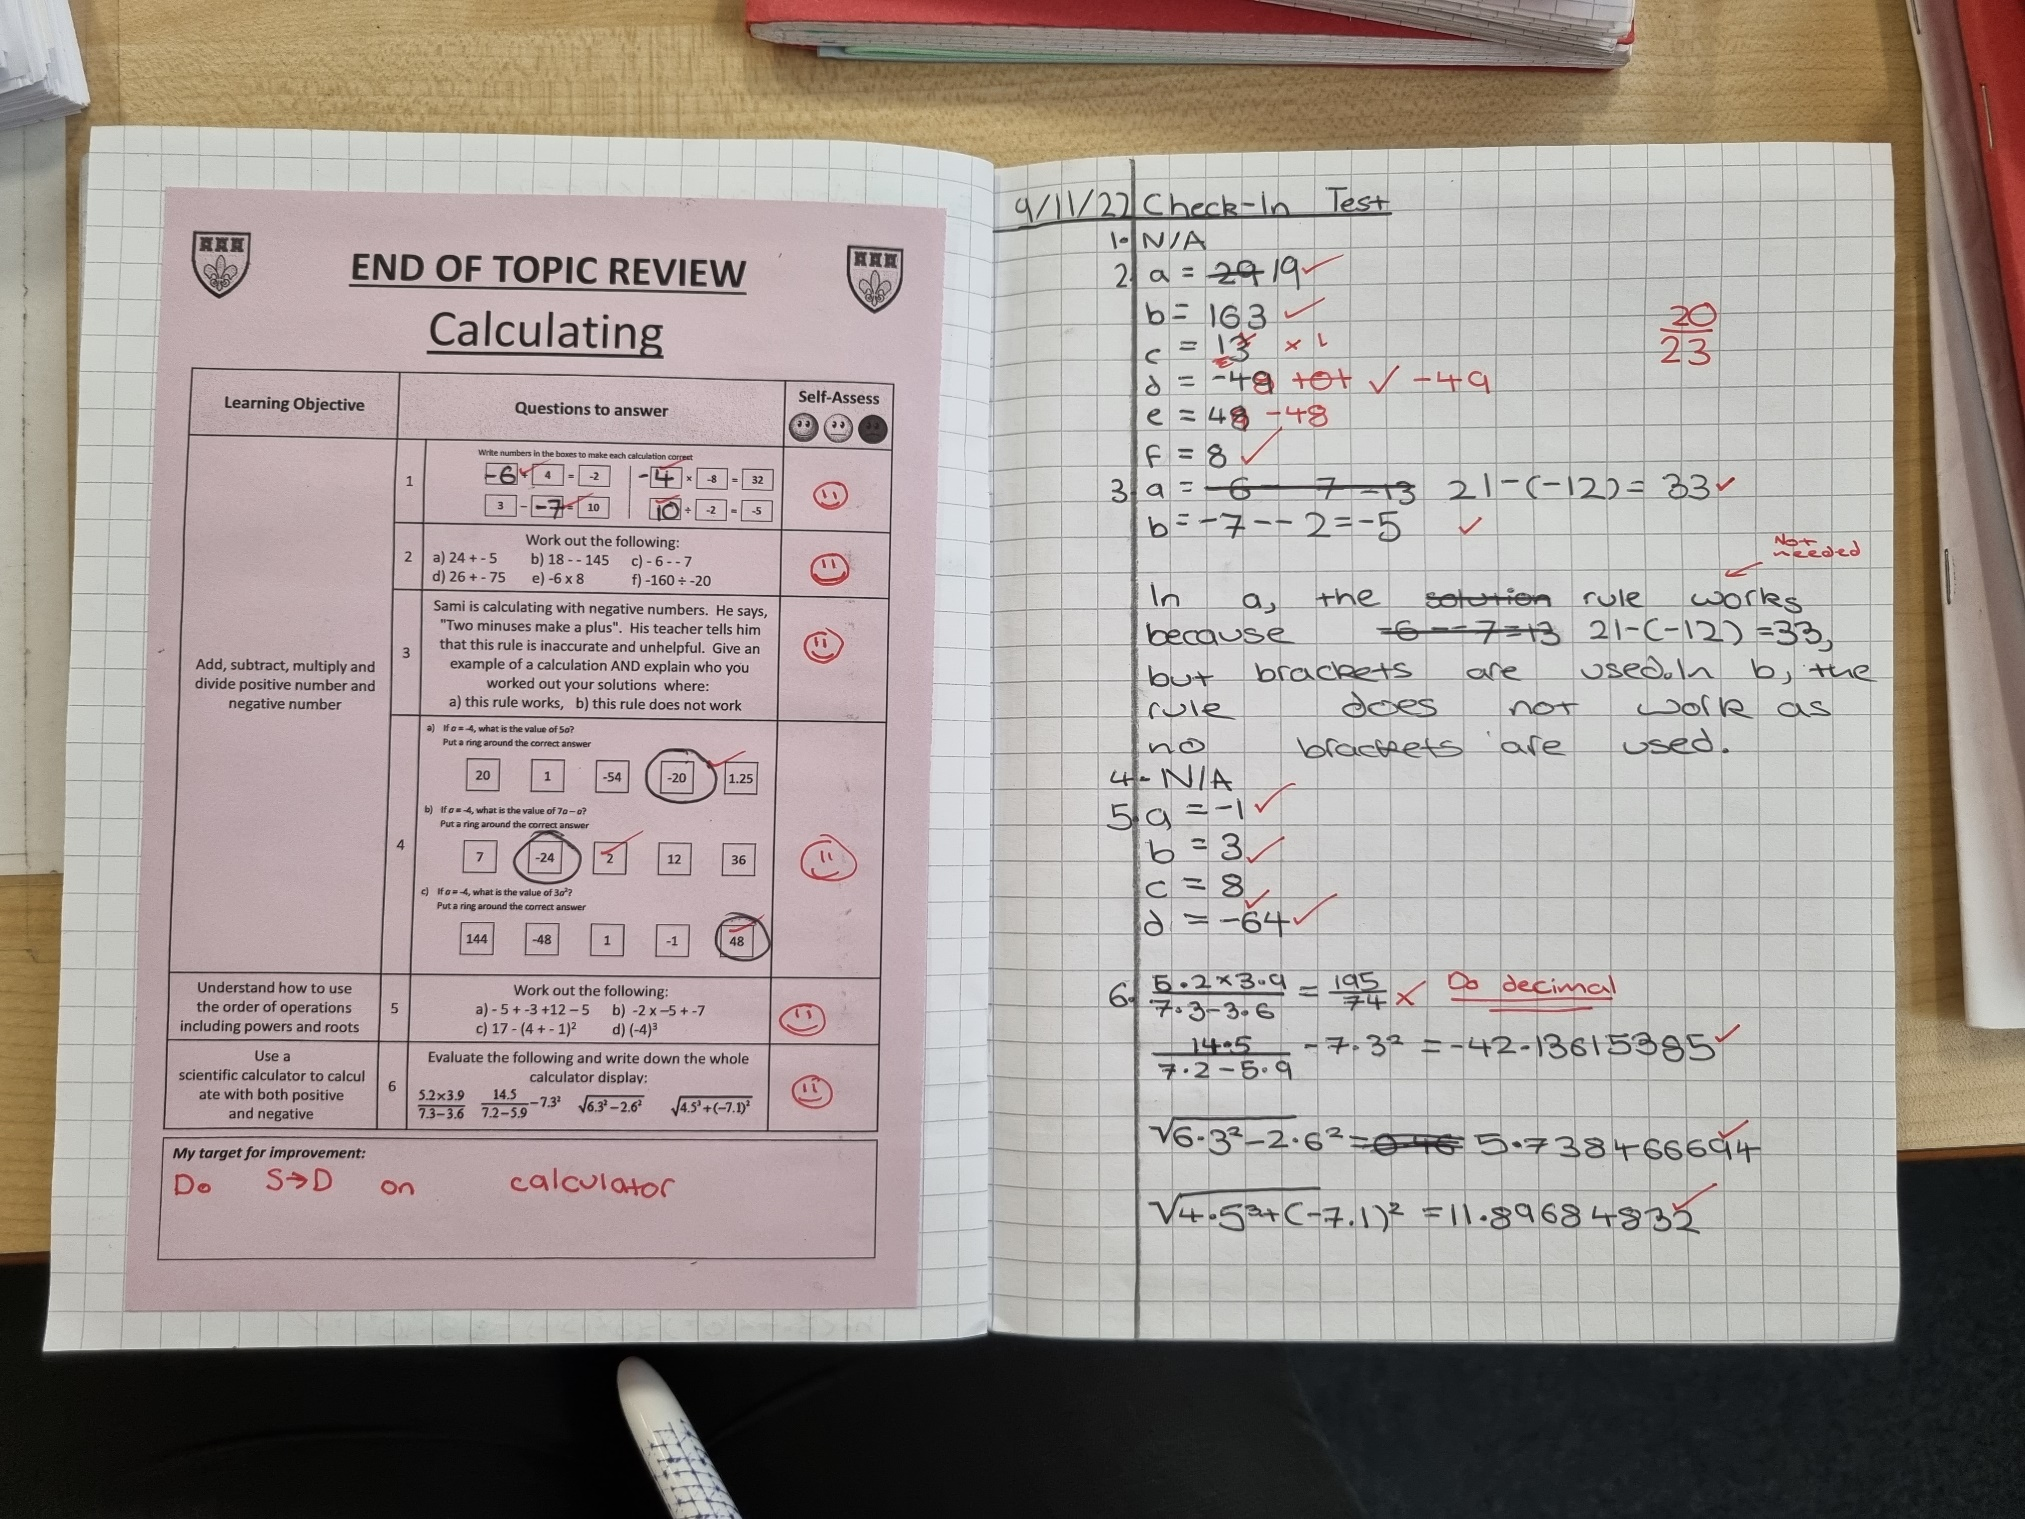 END OF TOPIC REVIEW
Calculating
Learning Objective
Questions to answer
Self-Assess
Add, subtract, multiply and
divide positive number and
negative number
1
Write numbers in the boxes to make each calculation correct
-6 + 4 = -2
-4 × -8 = 32
3 - -7 = 10
10 ÷ -2 = -5
2
Work out the following:
a) 24 + - 5 b) 18 - - 145 c) - 6 - - 7
d) 26 + - 75 e) -6 x 8 f) -160 ÷ -20
3
Sami is calculating with negative numbers. He says,
"Two minuses make a plus". His teacher tells him
that this rule is inaccurate and unhelpful. Give an
example of a calculation AND explain who you
worked out your solutions where:
a) this rule works, b) this rule does not work
4
a) If a = -4, what is the value of 5a?
Put a ring around the correct answer
20 1 -54 -20 1.25
b) If a = -4, what is the value of 7a – a?
Put a ring around the correct answer
7 -24 2 12 36
c) If a = -4, what is the value of 3a²?
Put a ring around the correct answer
144 -48 1 -1 48
Understand how to use
the order of operations
including powers and roots
5
Work out the following:
a) - 5 + -3 +12 – 5 b) -2 x –5 + -7
c) 17 - (4 + - 1)² d) (-4)³
Use a
scientific calculator to calcul
ate with both positive
and negative
6
Evaluate the following and write down the whole
calculator display:
5.2×3.9 / 7.3–3.6 14.5 / 7.2–5.9 –7.3² √6.3²–2.6² √4.5³+(–7.1)²
My target for improvement:
Do S→D on calculator
9/11/22 Check-In Test
1. N/A
2. a = 29 19 ✓
b = 163 ✓
c = 13 × 1
d = -48 ✓ -49
e = 48 -48
f = 8 ✓
20/23
3. a = 6 - - 7 = 13 21-(-12) = 33 ✓
b = -7 - - 2 = -5 ✓
Not
needed
In a, the solution rule works
because -6 - - 7 = 13 21-(-12) = 33,
but brackets are used. In b, the
rule does not work as
no brackets are used.
4. N/A
5. a = -1 ✓
b = 3 ✓
c = 8 ✓
d = -64 ✓
6. 5.2×3.9 / 7.3-3.6 = 195/74 × Do decimal
14.5 / 7.2-5.9 - 7.3² = -42.13615385 ✓
√6.3²-2.6² = 5.738466694 ✓
√4.5³+(-7.1)² = 11.89684832 ✓